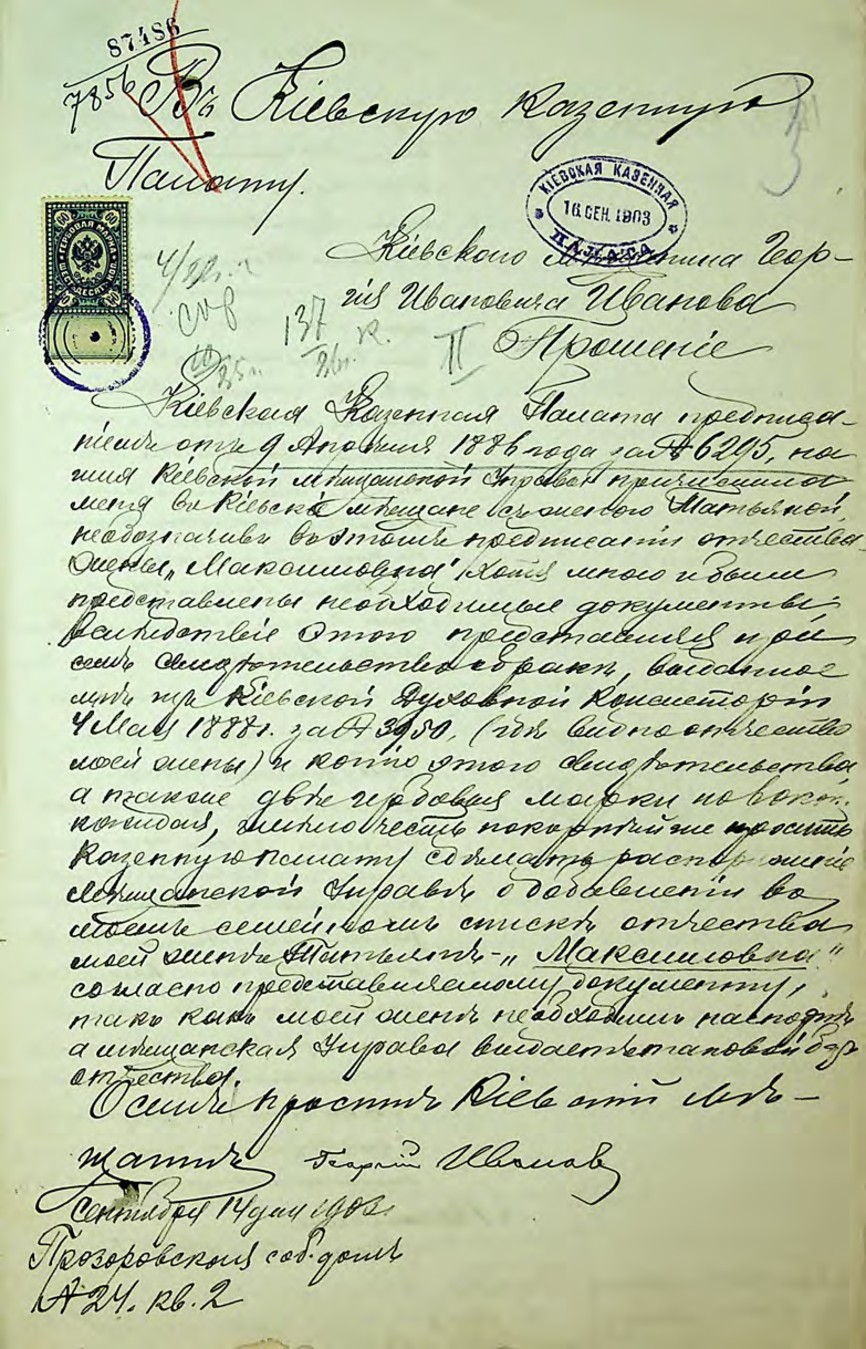 87486
7856
Въ Кіевскую казенную
Палату.
КІЕВСКАЯ КАЗЕННАЯ
16. СЕН. 1903
ПАЛАТА
60 60
ГЕРБОВАЯ МАРКА
ШЕСТЬДЕСЯТЪ КОП.
Кіевскаго мѣщанина Геор-
гія Ивановича Иванова
137
II
Прошеніе
Кіевская Казенная Палата предписа-
ніемъ отъ 9 Апрѣля 1886 года за № 6295, на
имя Кіевской мѣщанской Управы причислила
меня въ Кіевскіе мѣщане съ женою Татьяной,
необозначивъ въ этомъ предписаніи отчества
жены „Максимовна" хотя мною и были
представлены необходимые документы;
Вслѣдствіе этого представляя при
семъ Свидѣтельство о бракѣ, выданное
мнѣ изъ Кіевской Духовной Консисторіи
4 Мая 1888 г. за № 3950, (гдѣ видно отчество
моей жены) и копію этого Свидѣтельства
а также двѣ гербовыя марки по 60 коп.
каждая, имѣю честь покорнѣйше просить
Казенную палату сдѣлать распоряженіе
Мѣщанской Управѣ о добавленіи въ
моемъ семейномъ спискѣ отчества
моей женѣ Татьянѣ - „Максимовна"
согласно представляемому документу,
такъ какъ моей женѣ необходимъ паспортъ
а мѣщанская Управа выдаетъ таковой безъ
отчества.
О семъ проситъ Кіевскій мѣ-
щанинъ Георгій Ивановъ
Сентября 14 дня 1903 г.
Прозоровская соб. домъ
№ 24. кв. 2